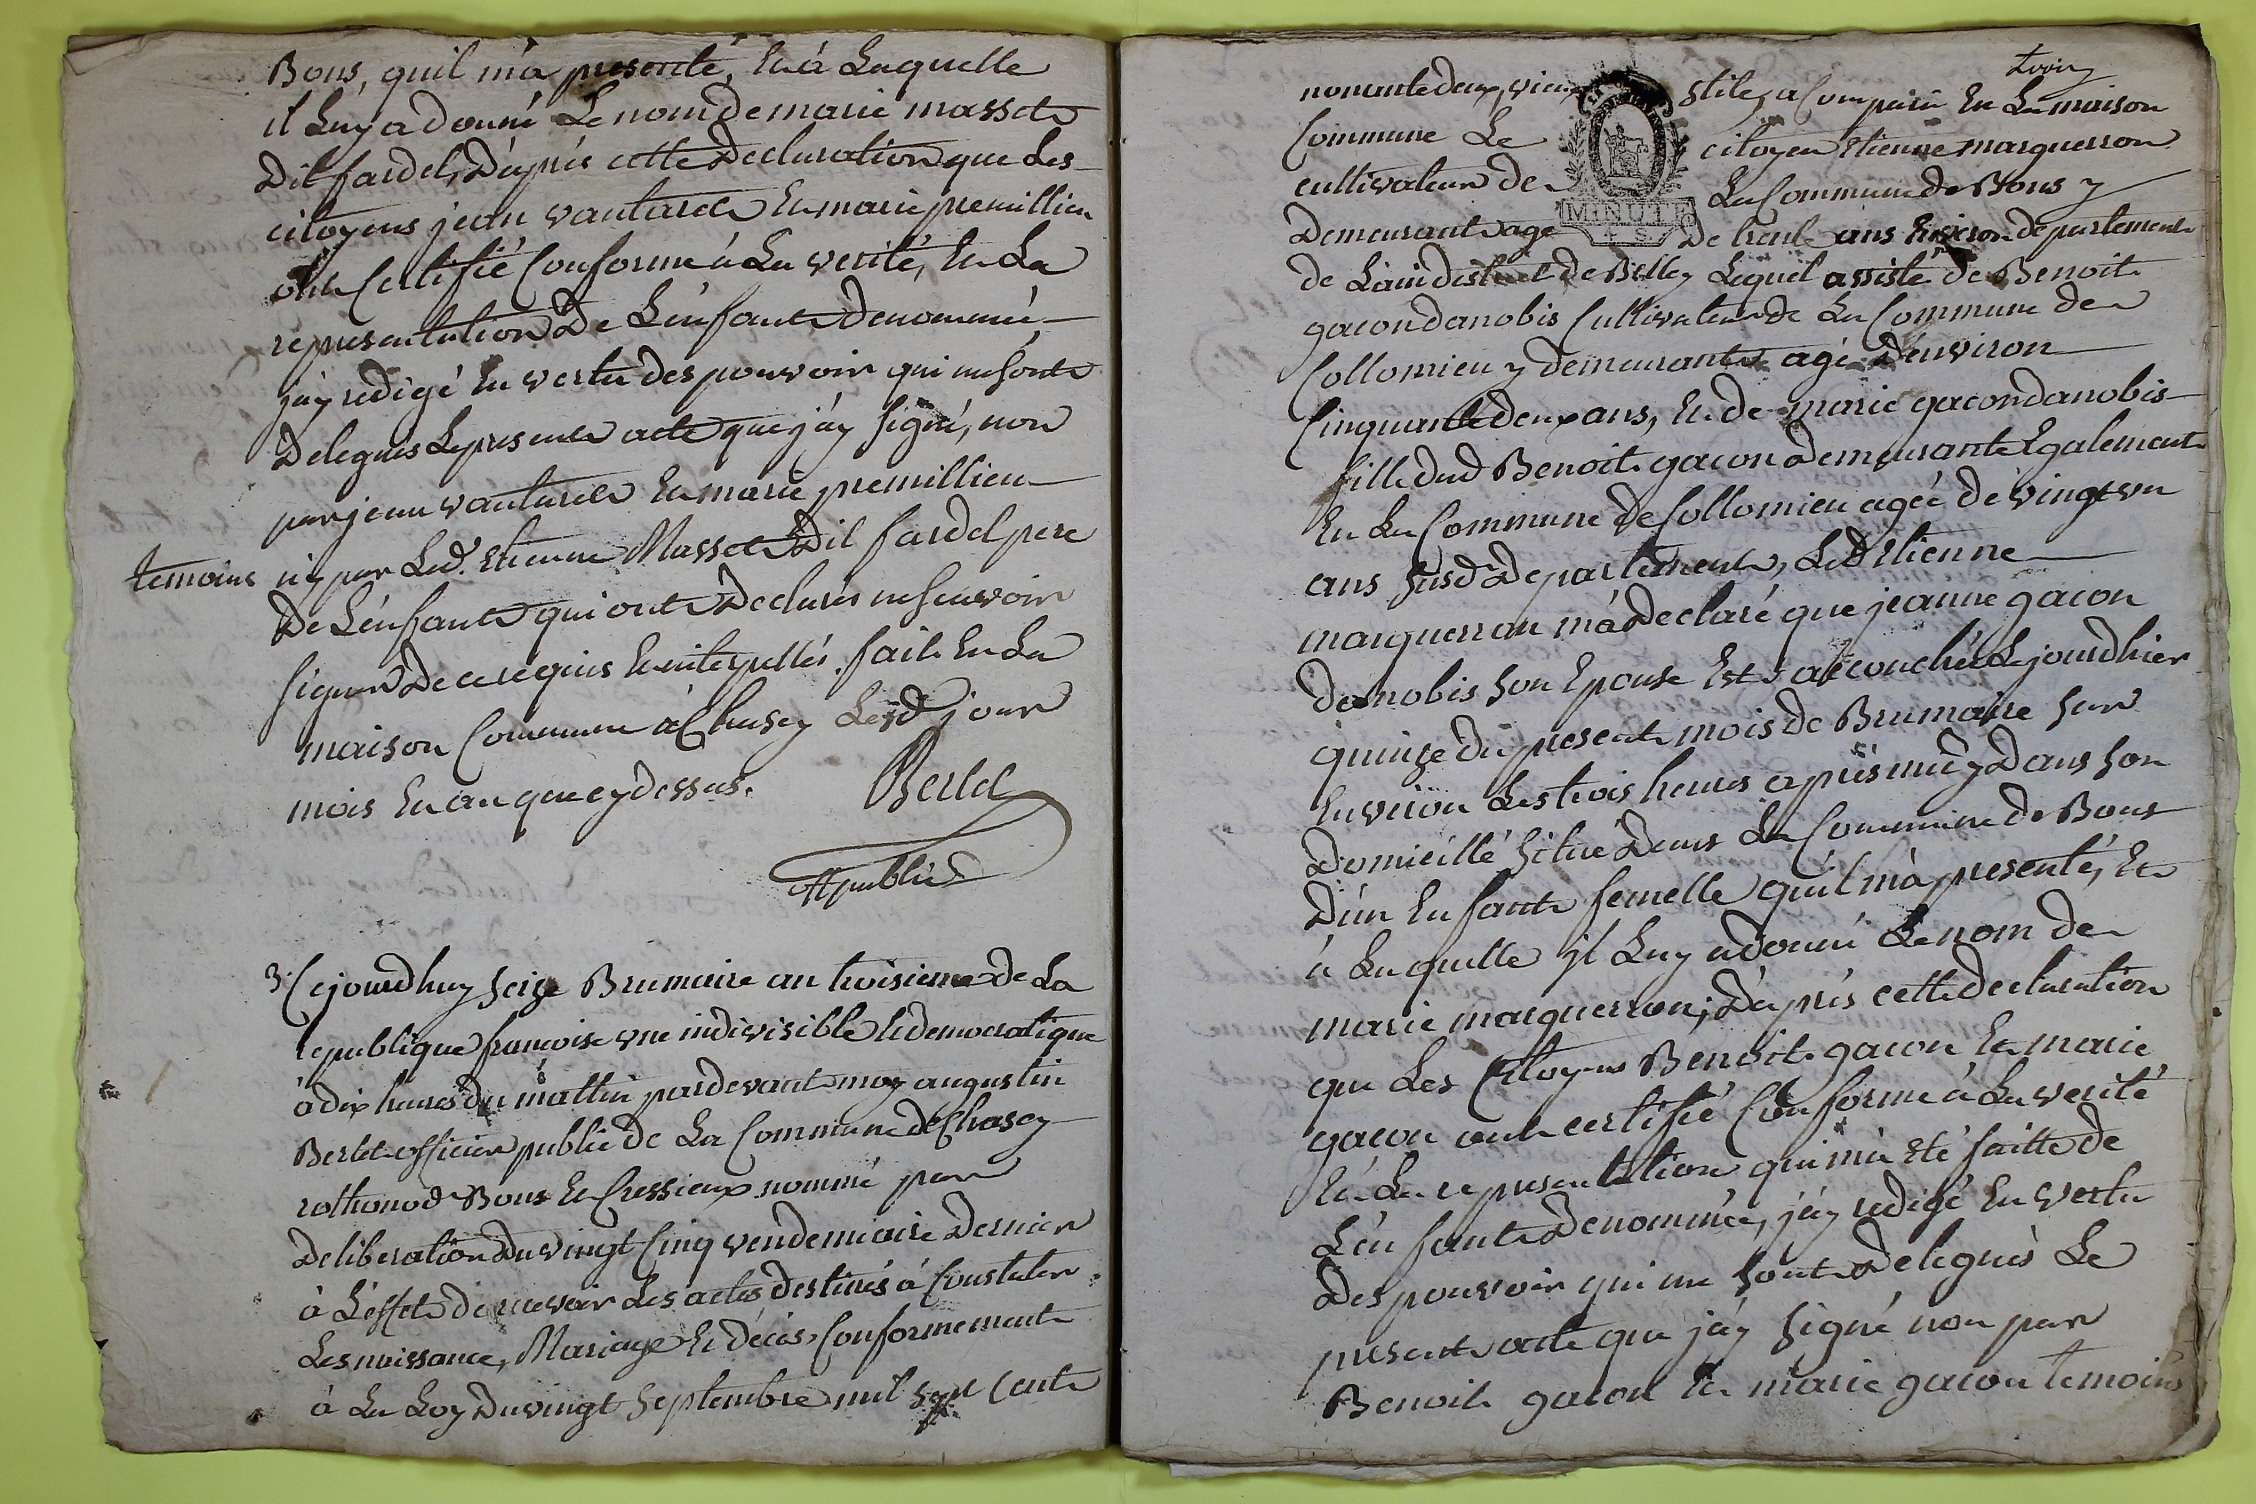 Bons, quil m'a presenté, et à Laquelle
il Luy a donné Le nom de marie masset
dit fardel, D'après cette Declaration que Les
citoyens jean vautaret et marie premillieu
ont Certifié Conforme à La verité, et La
representation De L'enfant denommé
j'ay redigé en vertu des pouvoir qui me sont
Delegués Le present acte que j'ay signé, non
par jean vautaret et marie premillieu
temoins ny par Led. Etienne Masset Dit fardel pere
De L'enfant qui ont Declarés ne scavoir
signer De ce requis et interpellés. fait en La
maison Commune à Chasey Lesd. jour
mois et an que cy dessus.
Berlet
off public
3. Cejourd'huy seize Brumaire an troisieme de La
republique françoise une indivisible et democratique
à dix heures du mattin pardevant moy augustin
Berlet officier public de La Commune de Chasey
rothonod Bons et Cressieux nommé par
Deliberation Du vingt Cinq vendemiaire Dernier
à L'effet de recevoir Les actes destinés à Constater
Les naissance, Mariage et décès Conformement
à La Loy Du vingt septembre mil sept Cent
trois
nonante deux, vieux stile, a Comparu en La maison
Commune Le citoyen etienne marguerron
cultivateur de La Commune de Bons y
Demeurant age De trente ans environ departement
de L'ain district de Belley Lequel assisté de Benoit
gacon danobis Cultivateur de La Commune de
Collomieu y demeurant agé D'environ
Cinquante deux ans, et de marie gacon danobis
fille dud Benoit gacon demeurante egalement
en La Commune de Collomieu agée de vingt un
ans susd. Departement, Led Etienne
marguerron m'a Declaré que jeanne gacon
danobis son Epouse Est accouchée Le jourdhier
quinze du present mois de Brumaire sur
environ Les trois heures après midy Dans son
Domicille situé Dans La Commune de Bons
D'un Enfant femelle qu'il m'a presenté, et
à Laquelle il Luy a donné Le nom de
marie marguerron; D'après cette declaration
que Les Citoyens Benoit gacon et marie
gacon ont certifié Conforme à La verité
et La representation qui m'a eté faitte de
L'enfant Denommée, j'ay redigé en vertu
Des pouvoir qui me sont Delegués Le
present acte que j'ay signé non par
Benoit gacon et marie gacon temoins
MINUTE